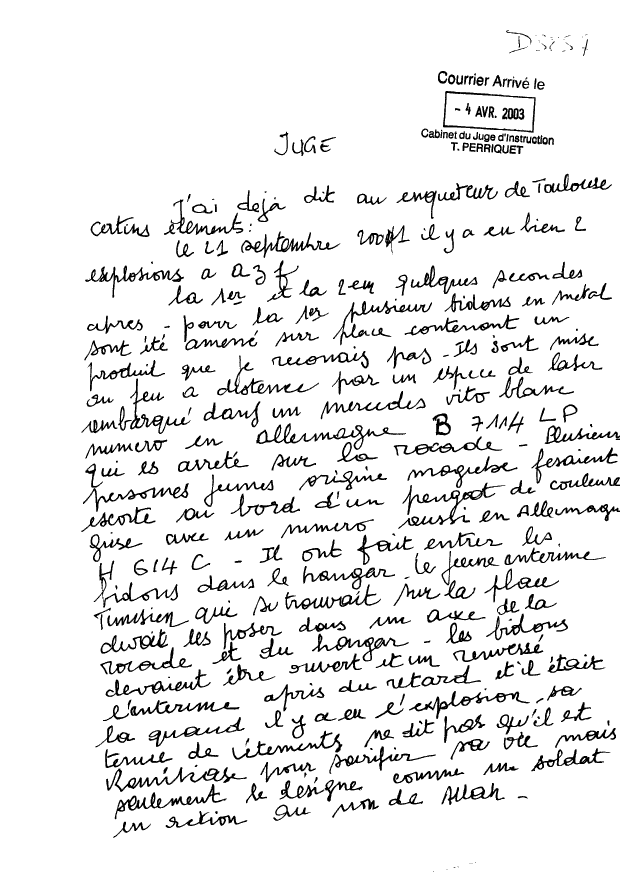 D5857
Courrier Arrivé le
- 4 AVR. 2003
Cabinet du Juge d'Instruction
T. PERRIQUET
JUGE
J'ai dejà dit au enqueteur de Toulouse
certins élements:
Le 21 septembre 2001 il y a eu bien 2
explosions a azf
la 1er et la 2em quelques secondes
apres - pour la 1er plusieur bidons en metal
sont été amené sur place contenant un
produit que je reconais pas - Ils sont mise
au feu a distence par un espece de laser
embarqué dans un mercedes vito blanc
numero en allemagne B 7114 LP
qui es arreté sur la rocade - Plusieurs
personnes jeunes origine magrebe fesaient
escorte au bord d'un peugot de couleure
grise avec un numero aussi en Allemagne
H 614 C - Il ont fait entrer les
bidons dans le hangar - le jeune enterime
Tunisien qui se trouvait sur la place
devait les poser dans un axe de la
rocade et du hangar - les bidons
devaient être ouvert et un renversé
l'enterime apris du retard et il était
la quand il y a eu l'explosion - sa
tenue de vêtements ne dit pas qu'il est
Kamikase pour sacrifier sa vie mais
seulement le désigne comme un soldat
en action au nom de Allah -